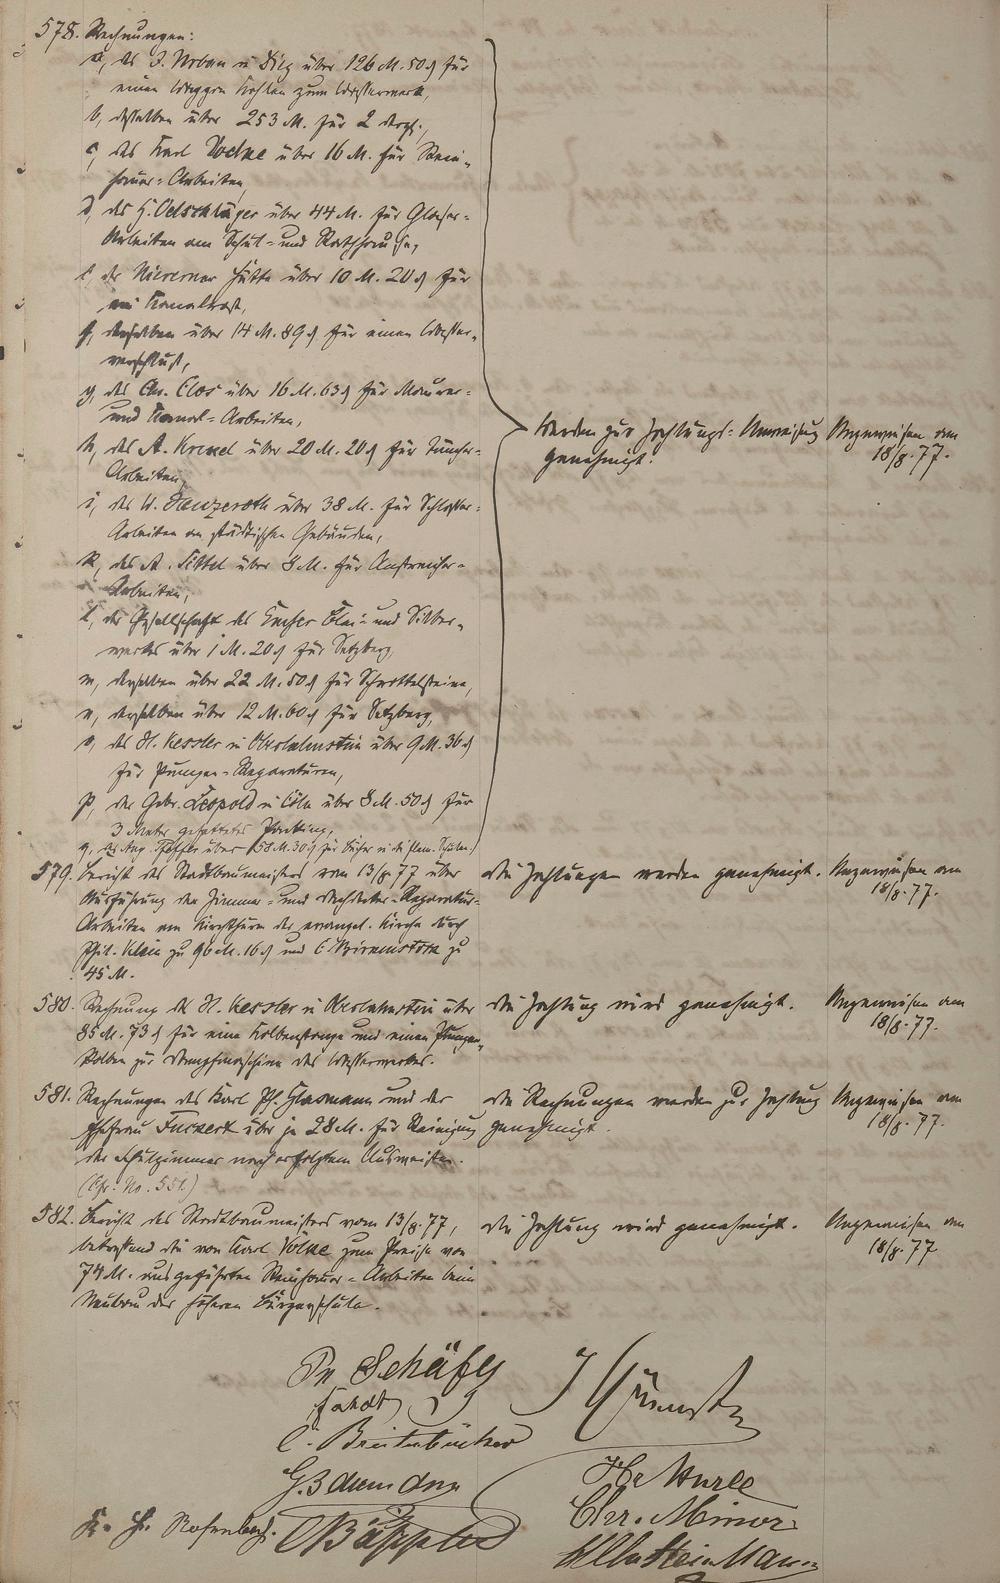 578. Rechnungen:
a, des J. Urban u Dietz über 126 M. 50 ₰ für
einen Waggon Kohlen zum Wasserwerk,
b, desselben über 253 M. für 2 dergl.,
c, des Karl Volke über 16 M. für Stein-
hauer-Arbeiten,
d, des H. Oelschläger über 44 M. für Glaser-
Arbeiten am Schul- und Rathhause,
e, der Nieverner Hütte über 10 M. 20 ₰ für
ein Kanalrost,
f, derselben über 14 M. 89 ₰ für einen Wasser-
verschluß,
g, des Chr. Clos über 16 M. 63 ₰ für Maurer-
und Kanal-Arbeiten,
h, des A. Kremel über 20 M. 20 ₰ für Tüncher-
Arbeiten,
i, des W. Hanzeroth über 38 M. für Schlosser-
Arbeiten an städtischen Gebäuden,
k, des A. Sittel über 8 M. für Anstreicher-
Arbeiten,
l, der Gesellschaft des Emser Blei- und Silber-
werkes über 1 M. 20 ₰ für Setzberg,
m, derselben über 22 M. 50 ₰ für Schrottelsteine,
n, derselben über 12 M. 60 ₰ für Setzberg,
o, des H. Kessler in Oberlahnstein über 9 M. 36 ₰
für Pumpen-Reparaturen,
p, der Gebr. Leopold in Cöln über 8 M. 50 ₰ für
3 Meter gefetteter Packing,
q, des Aug. Pfeffer über 58 M. 30 ₰ für Bücher in die Elem. Schulen.
Werden zur Zahlungs-Anweisung
genehmigt.
Angewiesen am
18/8. 77.
579. Bericht des Stadtbaumeisters vom 13/8. 77 über
Ausführung der Zimmer- und Dachdecker-Reparatur-
Arbeiten am Kirchthurm der evangel. Kirche durch
Phil. Klein zu 96 M. 16 ₰ und C. Birkenstock zu
45 M.
Die Zahlungen werden genehmigt.
Angewiesen am
18/8. 77.
580. Rechnung des H. Kessler in Oberlahnstein über
85 M. 73 ₰ für eine Kolbenstange und einen Pumpen-
kolben zur Dampfmaschine des Wasserwerkes.
Die Zahlung wird genehmigt.
Angewiesen am
18/8. 77.
581. Rechnungen des Karl Ph. Glasmann und der
Ehefrau Fuckert über je 28 M. für Reinigung
der Schulzimmer nach erfolgtem Ausweißen.
(Cfr. No. 551.)
Die Rechnungen werden zur Zahlung
genehmigt.
Angewiesen am
18/8. 77.
582. Bericht des Stadtbaumeisters vom 13/8. 77,
betreffend die von Karl Volke zum Preise von
74 M. ausgeführten Steinhauer-Arbeiten beim
Neubau der höheren Bürgerschule.
Die Zahlung wird genehmigt.
Angewiesen am
18/8. 77
Schäfer
C. Breitenbücher
K. H. Rosenbach.
Chr. Minor